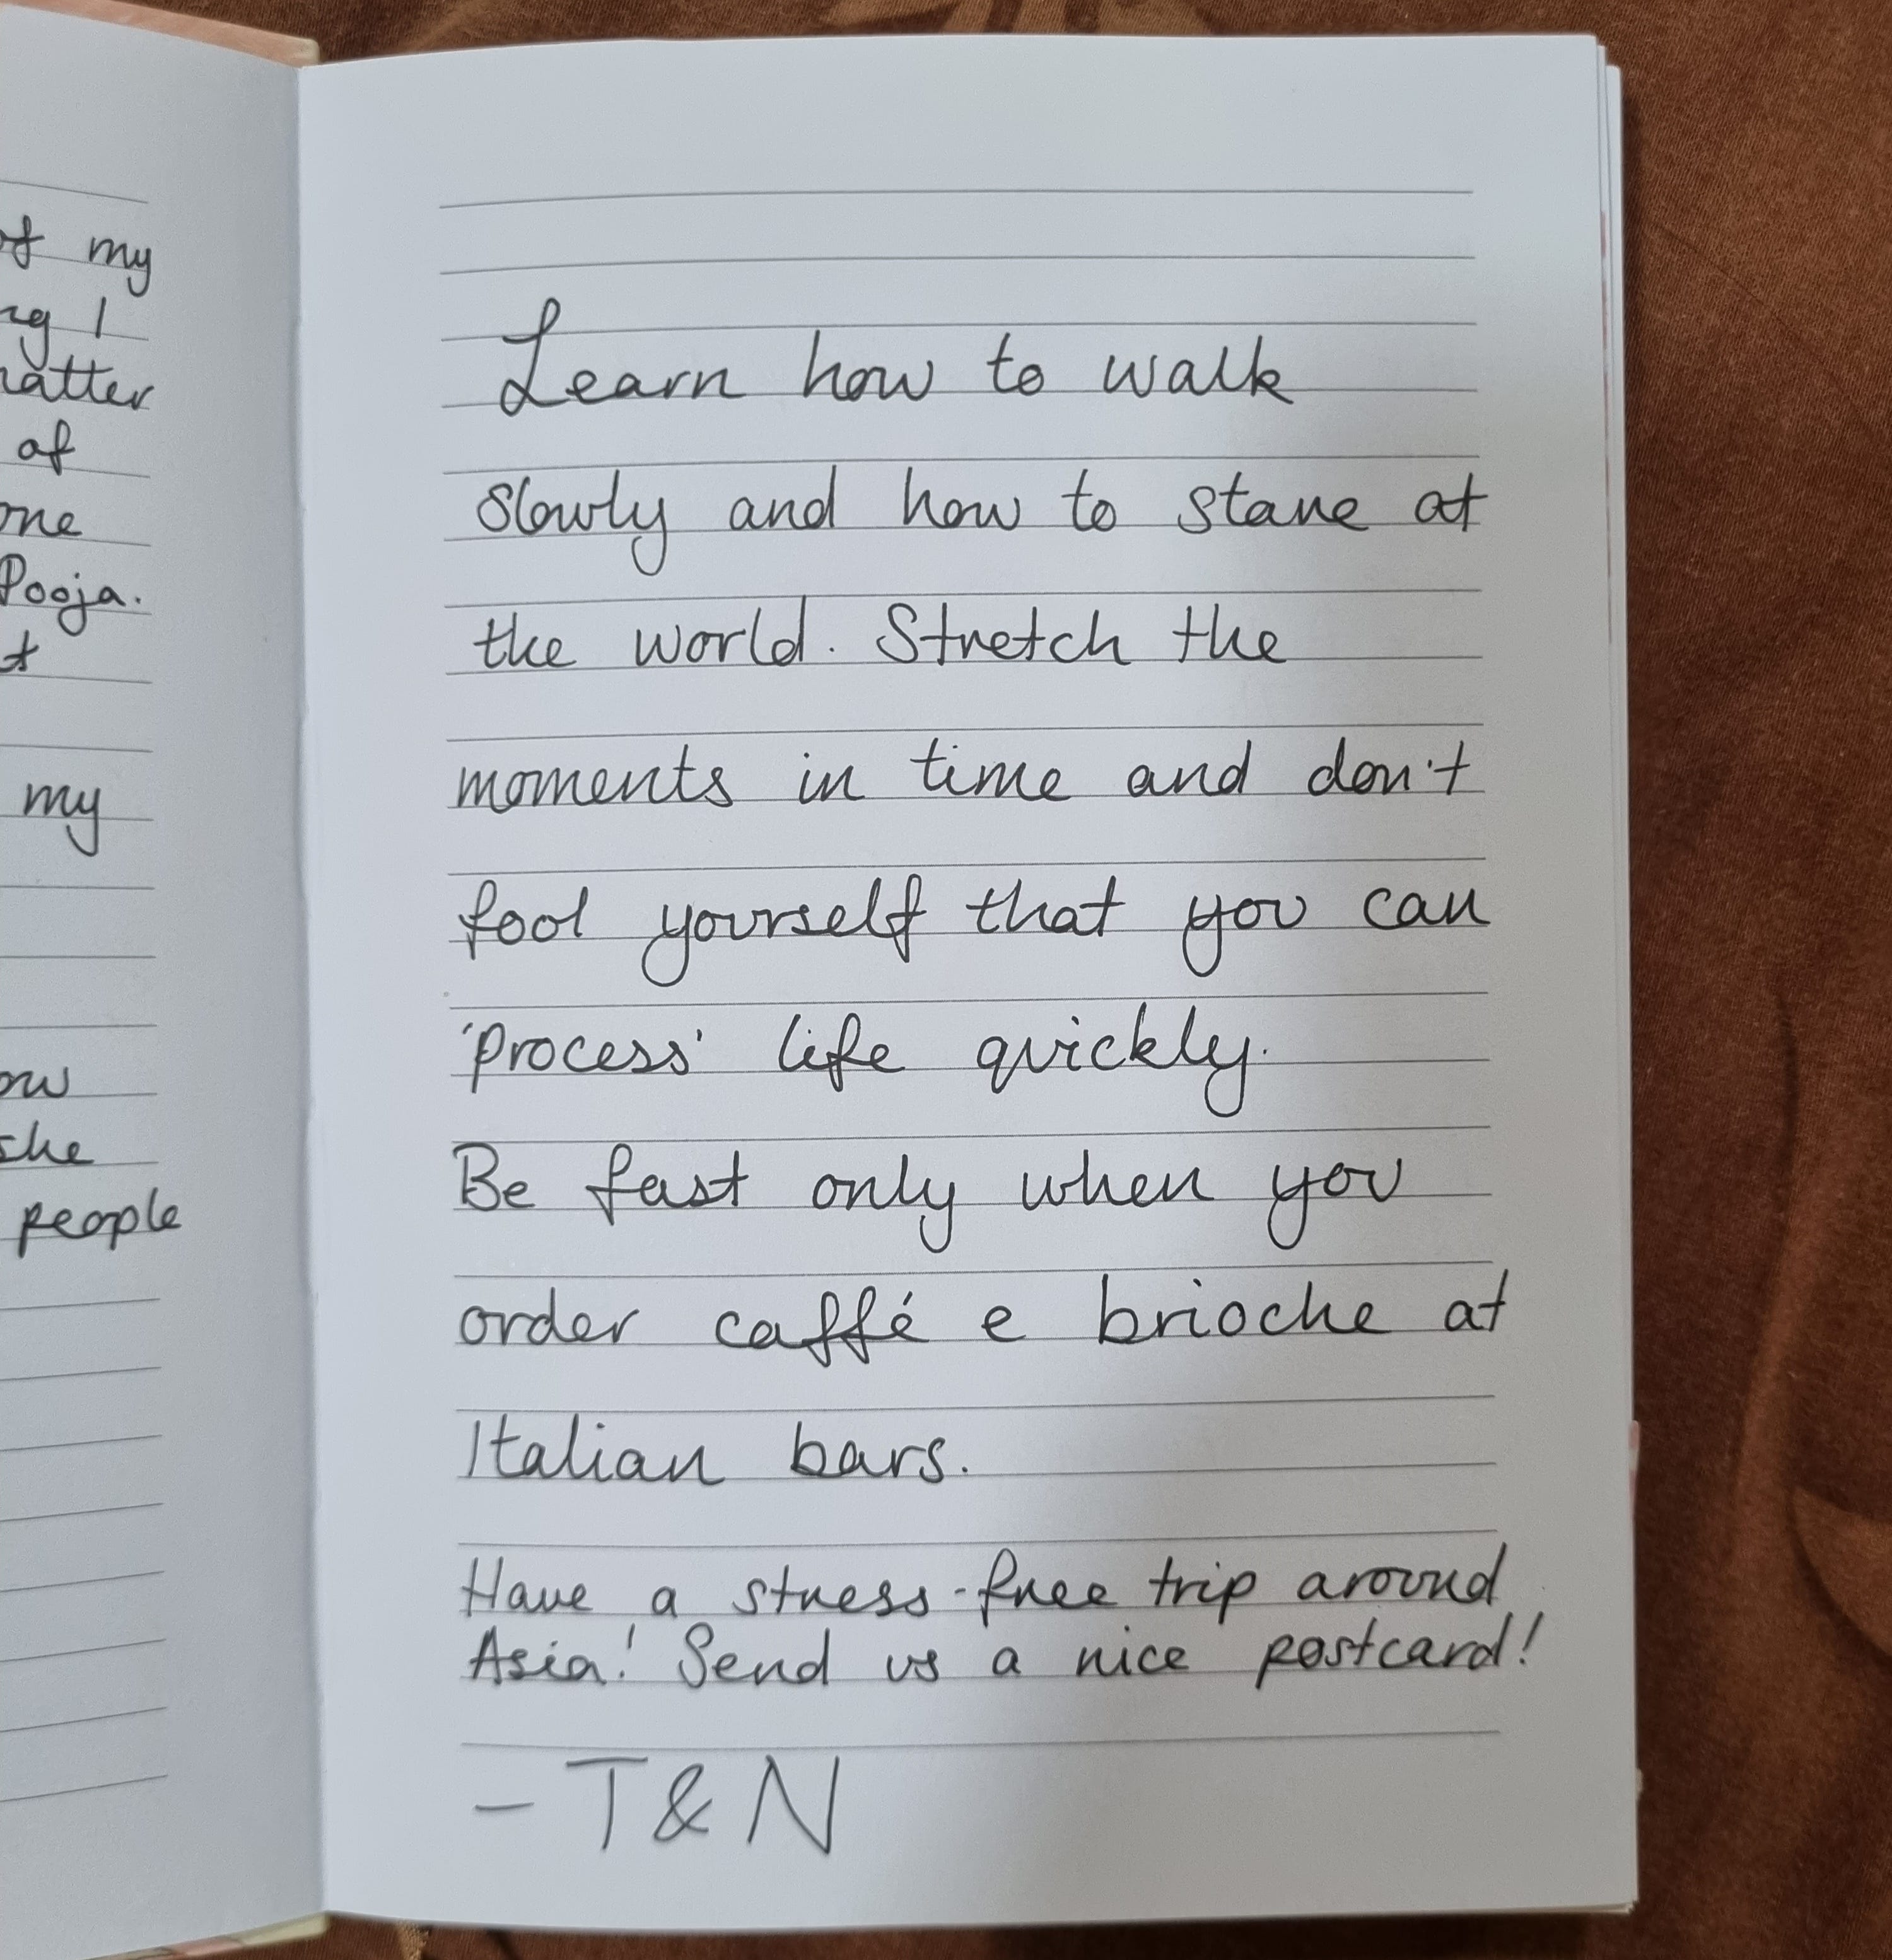 of my
I
of
Pooja.
my
she
people
Learn how to walk
slowly and how to stare at
the world. Stretch the
moments in time and don't
fool yourself that you can
'process' life quickly.
Be fast only when you
order caffé e brioche at
Italian bars.
Have a stress-free trip around
Asia! Send us a nice postcard!
- T & N